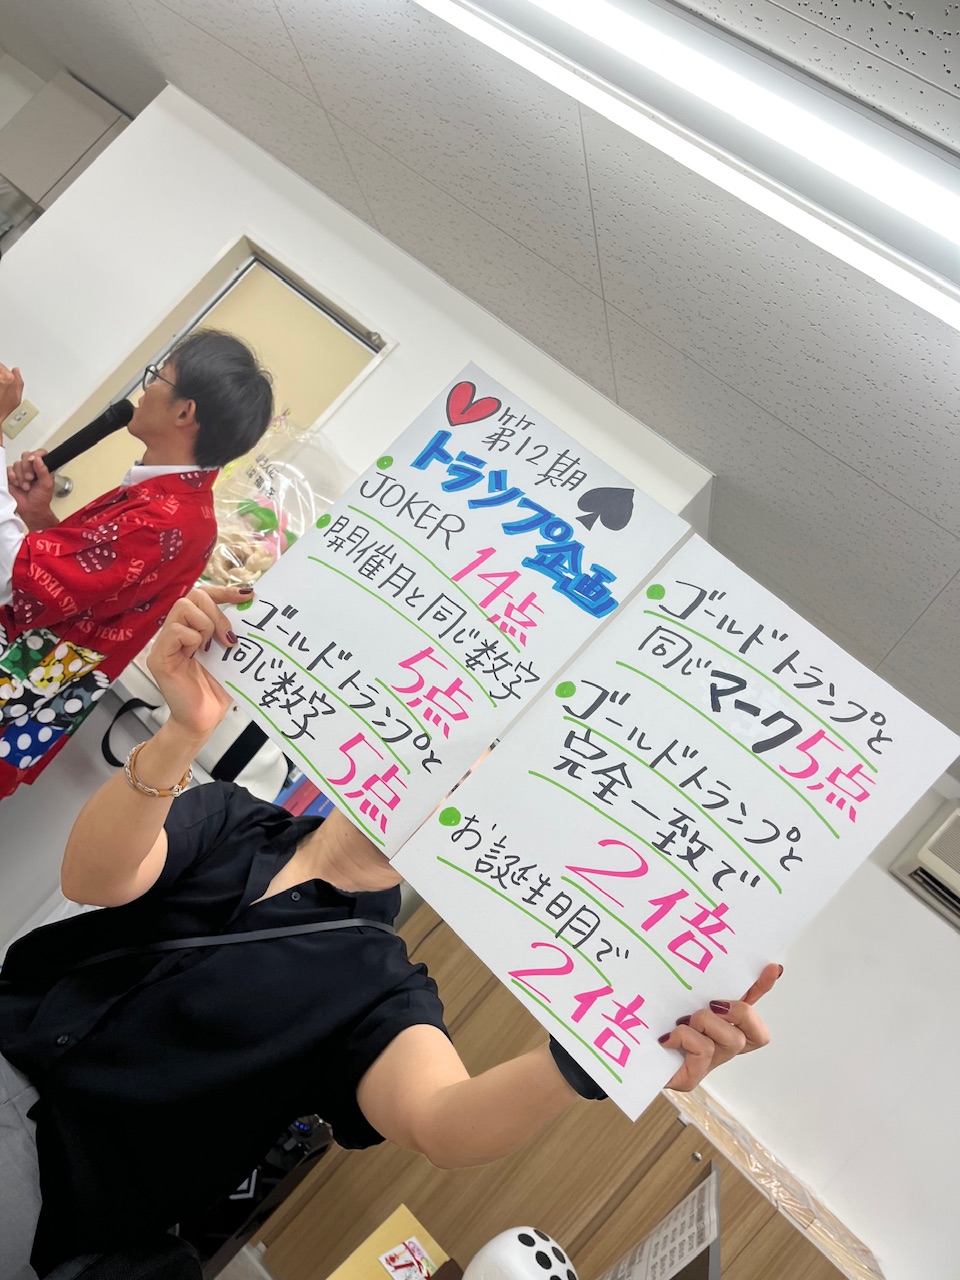 第12期
トランプ企画
JOKER 14点
開催月と同じ数字
5点
ゴールドトランプと
同じ数字 5点
ゴールドトランプと
同じマーク5点
ゴールドトランプと
完全一致で
2倍
お誕生日月で
2倍
LAS VEGAS